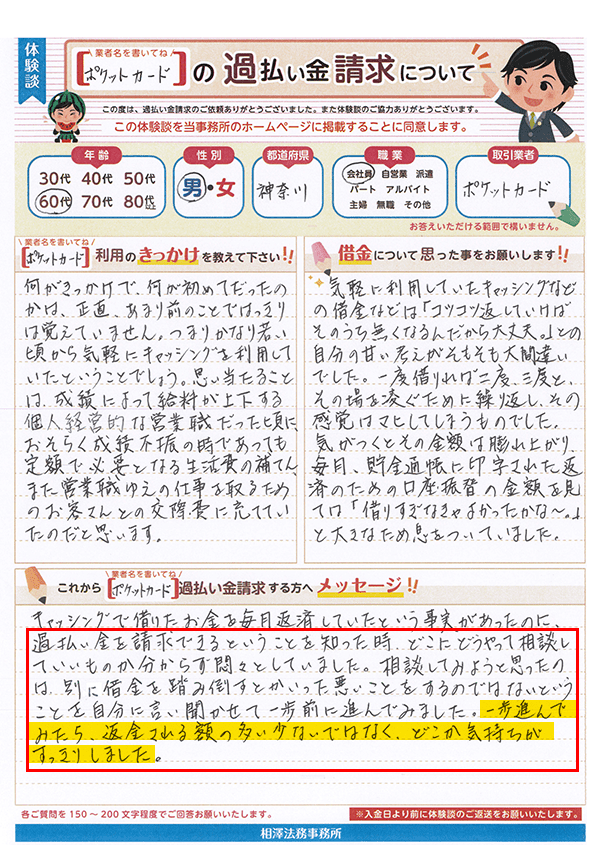 体験談
業者名を書いてね
[ポケットカード]の過払い金請求について
この度は、過払い金請求のご依頼ありがとうございました。また体験談のご協力ありがとうございます。
この体験談を当事務所のホームページに掲載することに同意します。
年齢
30代 40代 50代
60代 70代 80代以上
性別
男・女
都道府県
神奈川
職業
会社員 自営業 派遣
パート アルバイト
主婦 無職 その他
取引業者
ポケットカード
お答えいただける範囲で構いません。
業者名を書いてね
[ポケットカード]利用のきっかけを教えて下さい!!
何がきっかけで、何が初めてだったの
かは、正直、あまり前のことではっきり
は覚えていません。つまりかなり若い
頃から気軽にキャッシングを利用して
いたということでしょう。思い当たること
は、成績によって給料が上下する
個人経営的な営業職だった頃に、
おそらく成績不振の時であっても
定額で必要となる生活費の補てん、
また営業職ゆえの仕事を取るため
のお客さんとの交際費に充ててい
たのだと思います。
借金について思った事をお願いします!!
気軽に利用していたキャッシングなど
の借金などは「コツコツ返していけば
そのうち無くなるんだから大丈夫。」との
自分の甘い考えがそもそも大間違い
でした。一度借りれば二度、三度と、
その場を凌ぐために繰り返し、その
感覚はマヒしてしまうものでした。
気がつくとその金額は膨れ上がり、
毎月、貯金通帳に印字された返
済のための口座振替の金額を見
ては「借りすぎなきゃよかったかな〜。」
と大きなため息をついていました。
業者名を書いてね
これから[ポケットカード]過払い金請求する方へメッセージ!!
キャッシングで借りたお金を毎月返済していたという事実があったのに、
過払い金を請求できるということを知った時、どこにどうやって相談し
ていいものか分からず悶々としていました。相談してみようと思ったの
は、別に借金を踏み倒すとかいった悪いことをするのではないという
ことを自分に言い聞かせて一歩前に進んでみました。一歩進んで
みたら、返金される額の多い少ないではなく、どこか気持ちが
すっきりしました。
各ご質問を150〜200文字程度でご回答お願いいたします。
※入金日より前に体験談のご返送をお願いいたします。
相澤法務事務所